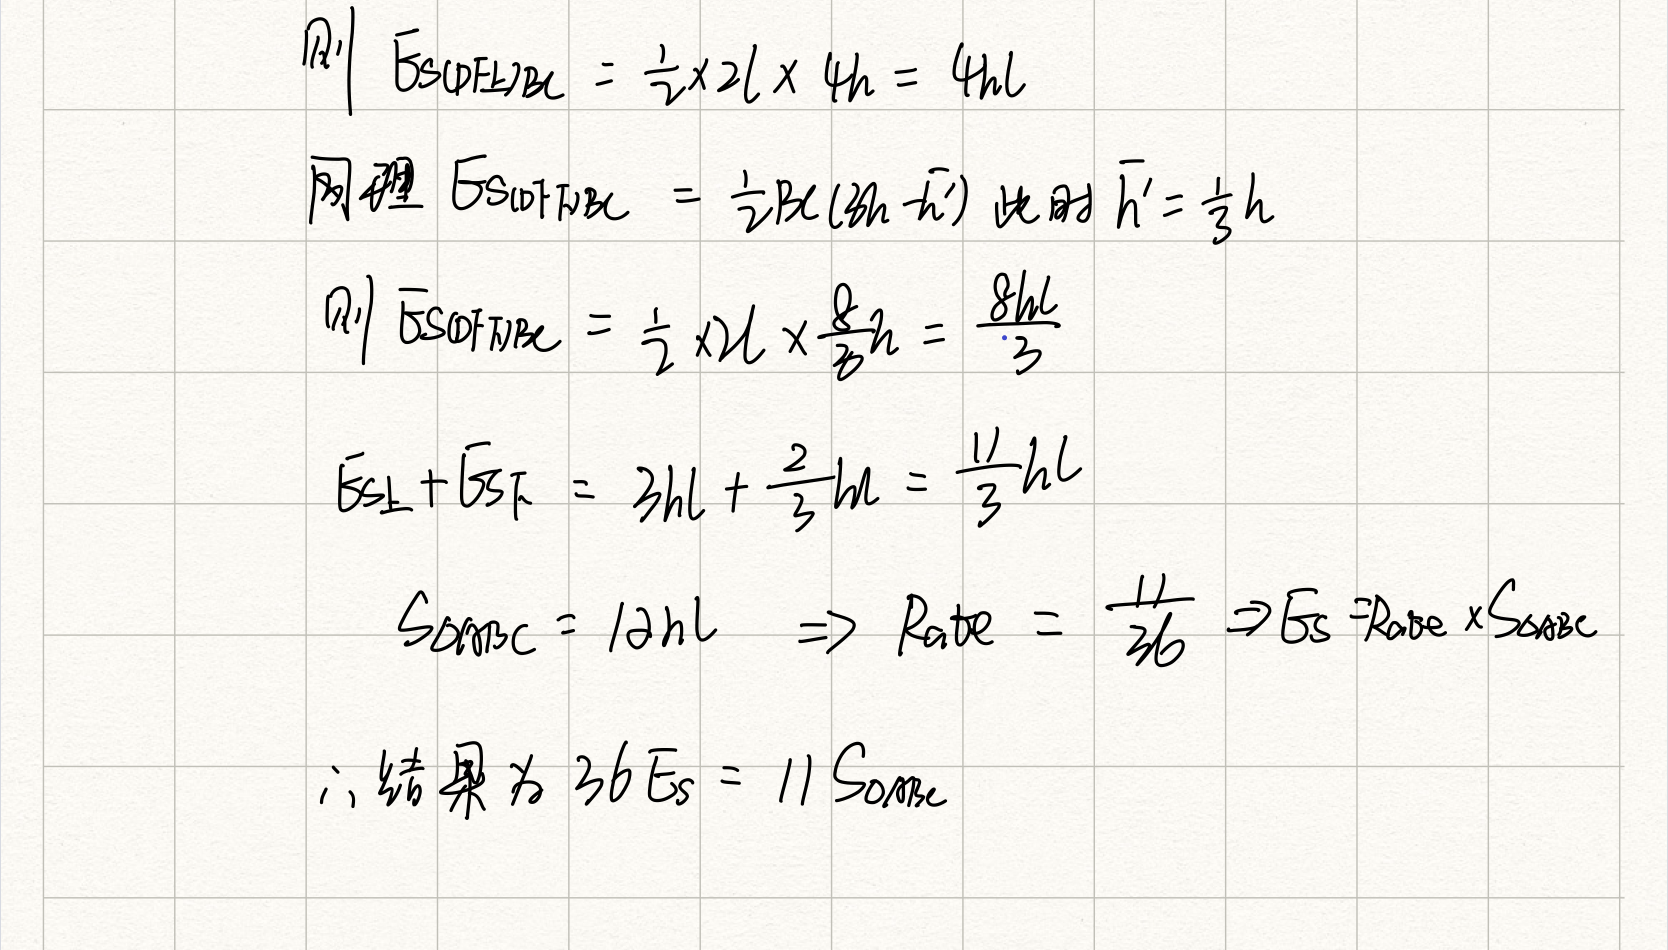 则 E_{S(DF上)BC} = 1/2 × 2l × 4h = 4hl
同理 E_{S(DF下)BC} = 1/2 BC(3h - h̄') 此时 h̄' = 1/3 h
则 E_{S(DF下)BC} = 1/2 × 2l × 8/3 h = 8hl/3
E_{S上} + E_{S下} = 3hl + 2/3 hl = 11/3 hl
S_{△ABC} = 12hl ⇒ Rate = 11/36 ⇒ E_S = Rate × S_{△ABC}
∴ 结果为 36E_S = 11 S_{△ABC}